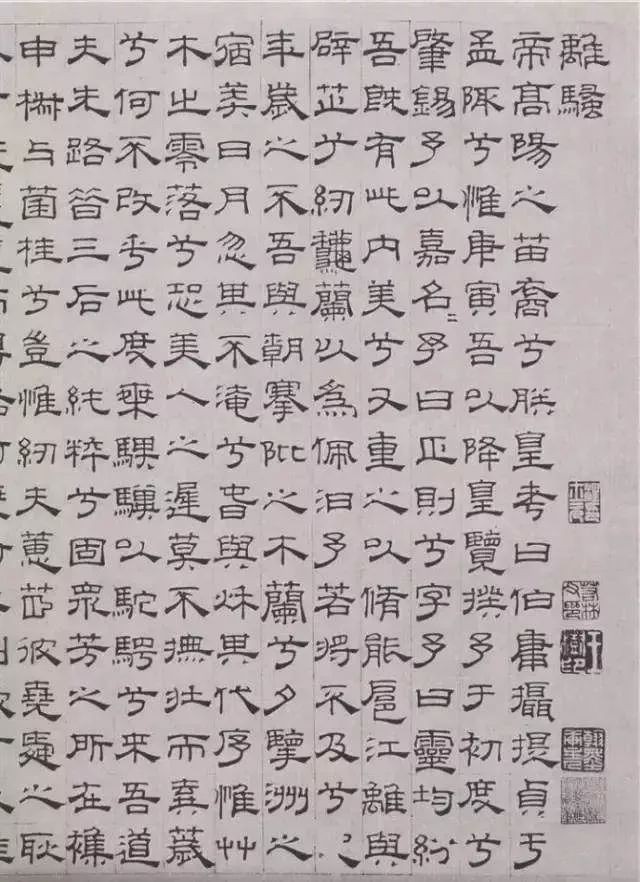 離騷
帝高陽之苗裔兮朕皇考曰伯庸攝提貞于
孟陬兮惟庚寅吾以降皇覽揆予于初度兮
肇錫予以嘉名〻予曰正則兮字予曰靈均紛
吾既有此內美兮又重之以脩能扈江離與
辟芷兮紉龝蘭以為佩汩予若將不及兮
年歲之不吾與朝搴阰之木蘭兮夕擥洲之
宿莽日月忽其不淹兮春與秌其代序惟艸
木之零落兮恐美人之遲莫不撫壯而棄薉
兮何不改乎此度乘騏驥以駝騁兮來吾道
夫先路昔三后之純粹兮固眾芳之所在雜
申椒与菌桂兮豈惟紉夫蕙茝彼堯舜之耿